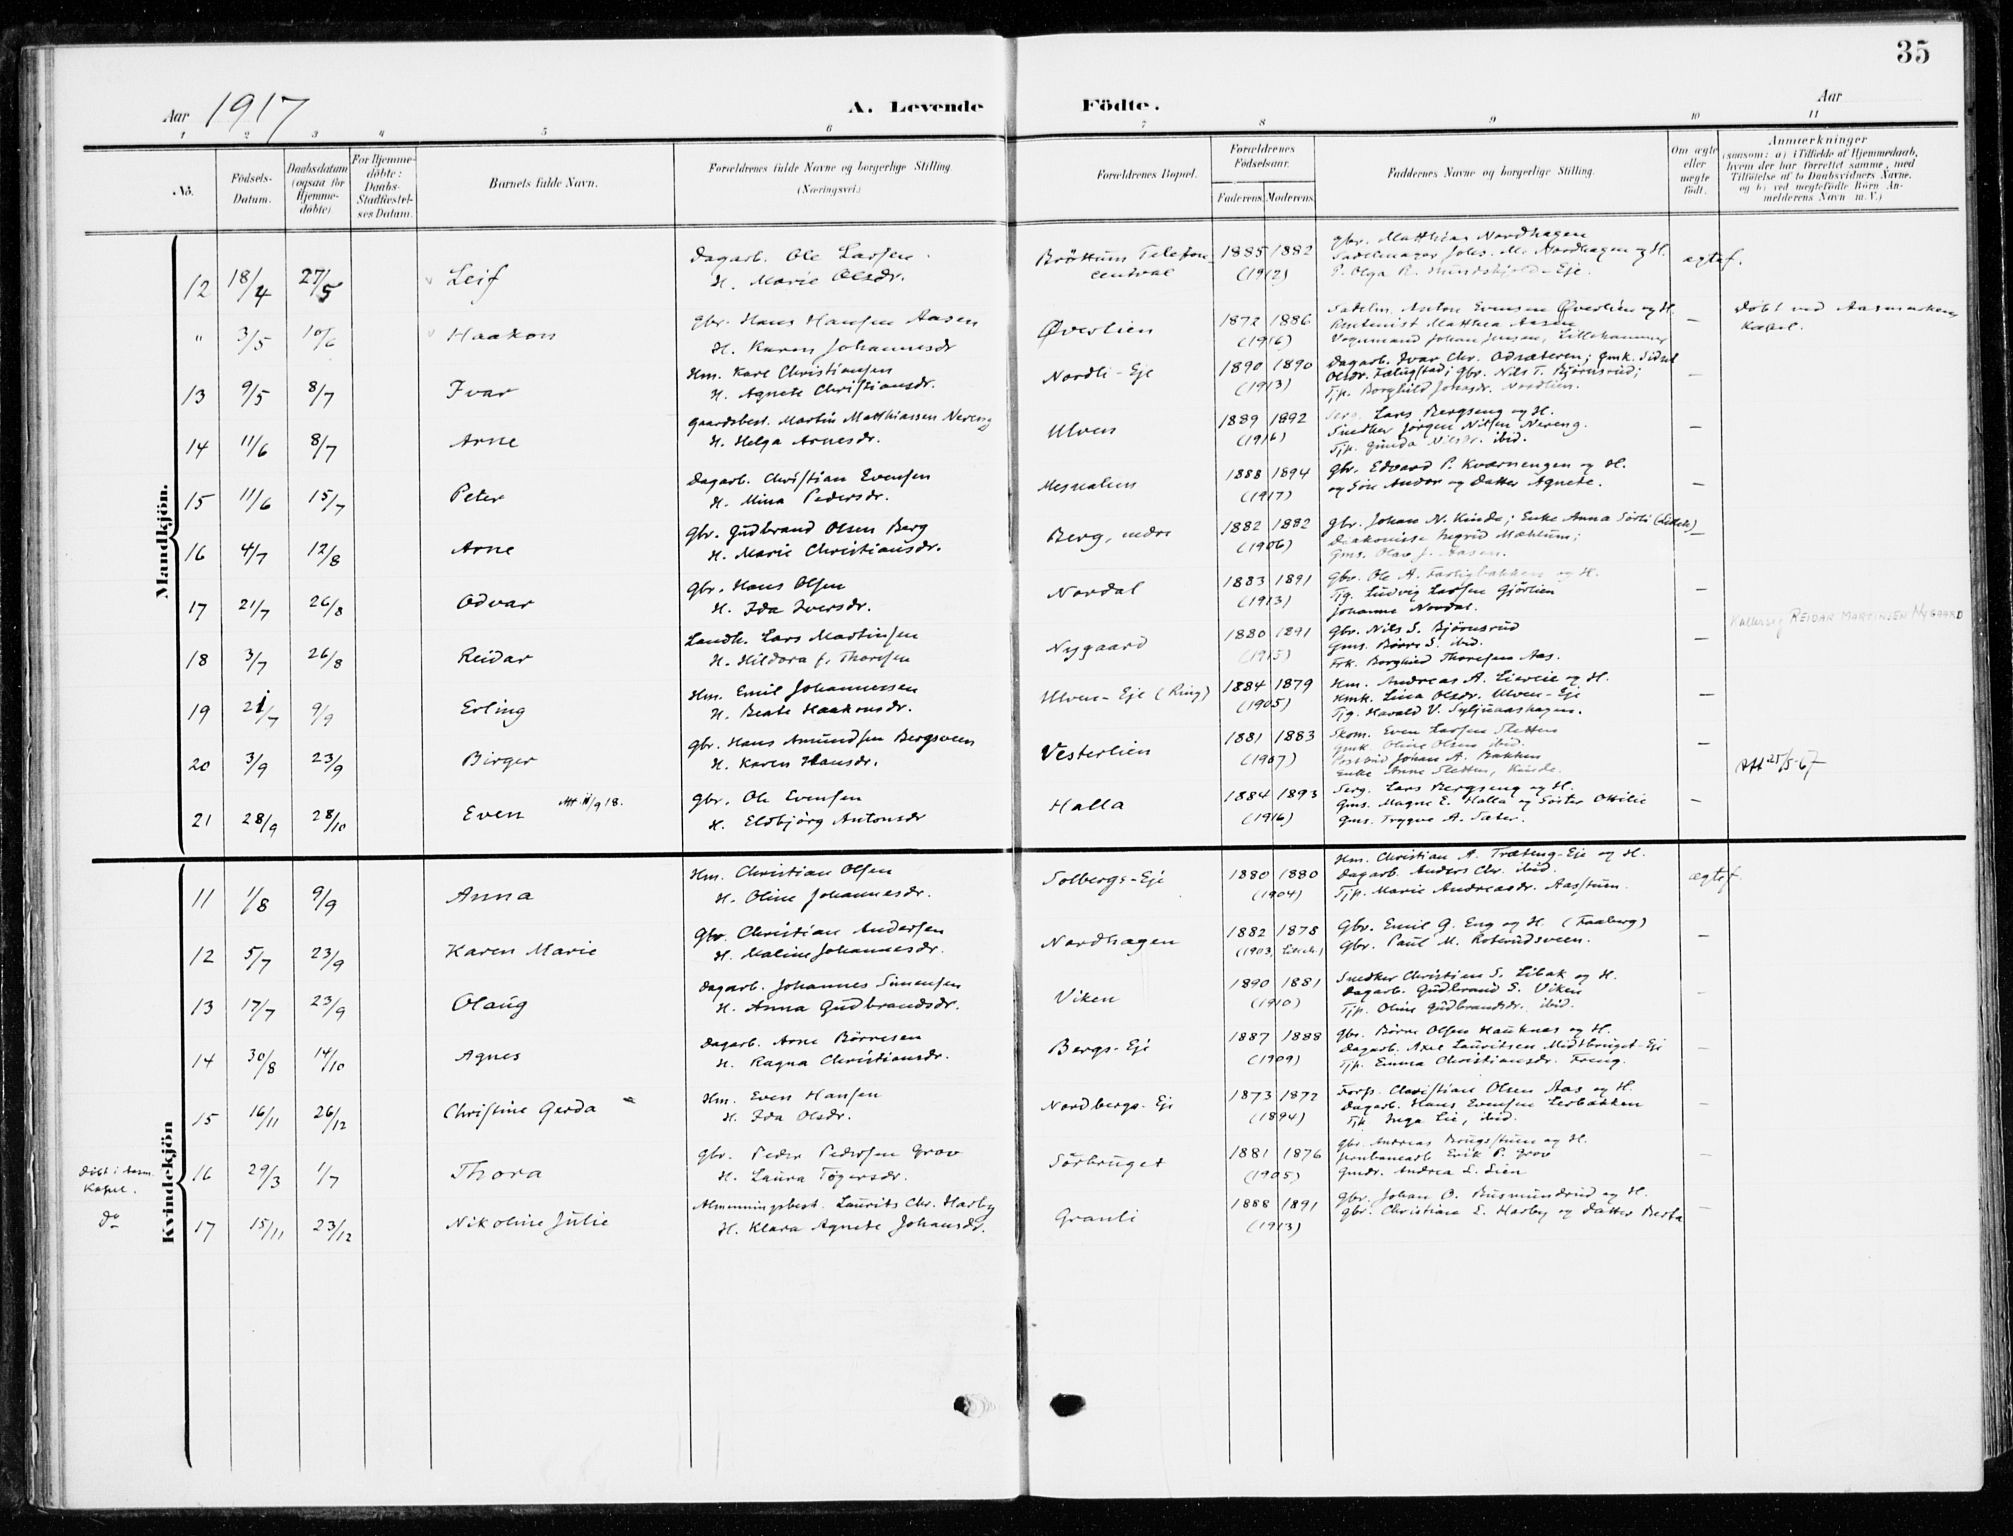 35
Aar 1917
A. Levende Födte.
Aar
1 2 3 4 5 6 7 8 9 10 11
No.
Födsels-Datum.
Daabsdatum (ogsaa för Hjemme-döbte)
For Hjemme-döbte: Daabs-Stadfæstel-ses Datum.
Barnets fulde Navn.
Forældrenes fulde Navne og borgerlige Stilling (Næringsvei.)
Forældrenes Bopæl.
Forældrenes Födselsaar.
Faderens. Moderens.
Faddernes Navne og borgerlige Stilling.
Om ægte eller uægte födt.
Anmærkninger
(saasom: a) i Tilfælde af Hjemmedaab,
hvem der har forrettet samme, med
Tilföielse af to Daabsvidners Navne,
og b) ved uægtefödte Börn An-
melderens Navn m. V.)
Mandkjön.
12 18/4 27/5 Leif
Dagarb. Ole Larsen
H. Marie Olsdr.
Bröttum Telefon
central
1885 1882
(1912)
gbr. Matthias Nordhagen
Sadelmager Johs. M. Nordhagen og H.
P. Olga R. Mindskjold-Eje.
ægtef.
" 3/5 10/6 Haakon
gbr. Hans Hansen Aasen
H. Karen Johannesdr
Øverlien
1872 1886
(1916)
Sadelm. Anton Evensen Øverlien og H.
Matthea Aasen
Vognmand Johan Jensen, Lillehammer
–
Döbt ved Aasmarken
Kapel.
13 9/5 8/7 Ivar
Hm. Karl Christiansen
H. Agnete Christiansdr.
Nordli-Eje
1890 1890
(1913)
Dagarb. Ivar Chr. Odsæteren; gmk. Sidsel
Olsdr. Fælugstad; gbr. Nils T. Björnsrud;
Tjp. Borghild Johsdr. Nordlien.
–
14 11/6 8/7 Arne
Gaardsbest. Martin Matthiassen Nereng
H. Helga Arnesdr.
Ulven
1889 1892
(1916)
Serg. Lars Bergseng og H.
Snedker Jörgen Nilsen Nereng.
Tjp. Gunda Nilsdr. ibid.
–
15 11/6 15/7 Peter
Dagarb. Christian Evensen
H. Mina Pedersdr.
Mesnalien
1888 1894
(1917)
gbr. Edvard P. Kværnengen og H.
og Sön Andor og Datter Agnete.
–
16 4/7 12/8 Arne
gbr. Gudbrand Olsen Berg
H. Marie Christiansdr.
Berg, nedre
1882 1882
(1906)
gbr. Johan N. Kinde; Enke Anna Sörli
Diakonisse Ingrid Mæhlum;
Gms. Olav J. Aasen.
–
17 21/7 26/8 Odvar
gbr. Hans Olsen
H. Ida Iversdr.
Nordal
1883 1891
(1913)
gbr. Ole A. Fastigbakken og H.
Tg. Ludvig Larsen Gjörlien
Johanne Nordal.
–
18 3/7 26/8 Reidar
Landh. Lars Martinsen
H. Hildora f. Thoresen
Nygaard
1880 1891
(1915)
gbr. Nils S. Björnsrud
Gms. Börre S. ibid.
Frk. Borghild Thoresen Aas.
–
Kaller seg REIDAR MARTINSEN NYGAARD
19 21/7 9/9 Erling
Hm. Emil Johannessen
H. Beate Haakonsdr.
Ulven-Eje (Ring)
1884 1879
(1905)
Hm. Andreas A. Liereie og H.
Hmk. Lina Olsdr. Ulven-Eje
Tjg. Harald V. Syljuaashagen.
–
20 3/9 23/9 Birger
gbr. Hans Amundsen Bergsveen
H. Karen Hansdr.
Vesterlien
1881 1883
(1907)
Skom. Even Larsen Sletten
Gmk. Oline Olsen ibid.
Postbud Johan A. Bakken
Enke Anne Sletten, Kinde.
–
Att 25/5-67
21 28/9 28/10 Even Att 11/9 18.
gbr. Ole Evensen
H. Eldbjörg Antonsdr
Halla
1884 1893
(1916)
Serg. Lars Bergseng og H.
Gms. Magne E. Halla og Söster Ottilie
Gms. Trygve A. Sæter.
–
Kvindekjön
11 1/8 9/9 Anna
Hm. Christian Olsen
H. Oline Johannesdr.
Solbergs-Eje
1880 1880
(1904)
Hm. Christian A. Træteng-Eje og H.
Dagarb. Anders Chr. ibid.
Tjp. Marie Andreasdr. Aasstuen.
ægtef.
12 5/7 23/9 Karen Marie
Gbr Christian Andersen
H. Maline Johannesdr.
Nordhagen
1882 1878
(1903)
Gbr. Emil G. Eng og H. (Faaberg)
Gbr. Paul M. Roterudsveen.
–
13 17/7 23/9 Olaug
Dagarb. Johannes Simensen
H. Anna Gudbrandsdr.
Viken
1890 1881
(1910)
Snedker Christian S. Libak og H.
Dagarb. Gudbrand S. Viken
Tjp. Oline Gudbrandsdr. ibid.
–
14 30/8 14/10 Agnes
Dagarb. Arne Börresen
H. Ragna Christiansdr.
Bergs-Eje
1887 1888
(1909)
gbr. Börre Olsen Hauknes og H.
Dagarb. Axel Lauritsen Midtbruget-Eje
Tjp. Emma Christiansdr. Freng.
–
15 16/11 26/12 Christine Gerda
Hm. Even Hansen
H. Ida Olsdr.
Nordbergs-Eje
1873 1872
(1894)
Forp. Christian Olsen Aas og H.
Dagarb. Hans Evensen Lerbakken
Tjp. Inga Lie, ibid.
–
Döbt i Aasm.
Kapel.
16 29/3 1/7 Thora
gbr. Peder Pedersen Grov
H. Laura Tögersdr.
Sörbruget
1881 1876
(1905)
gbr. Andreas Brugsstuen og H.
Jernbanearb Erik P. Grov
Gmdr. Andrea L. Lien
–
Do
17 15/11 23/12 Nikoline Julie
Almenningsbest. Laurits Chr. Harby
H. Klara Agnete Johansdr.
Granli
1888 1891
(1913)
gbr. Johan O. Busmundrud og H.
gbr. Christian E. Harby og Datter Berta
–